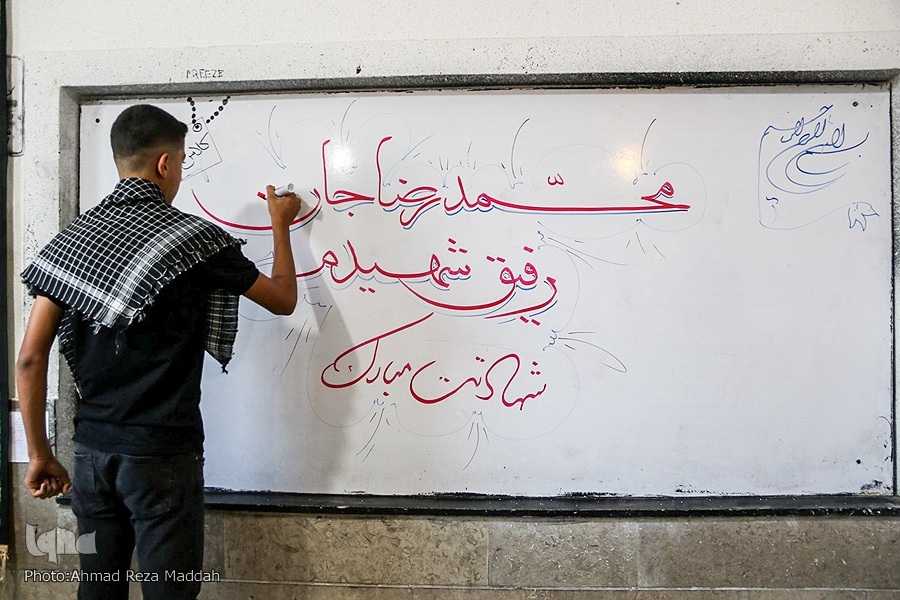 FREEZE
کلاس
محمّدرضا جان
رفیق شهیدم
شهادتت مبارک
iqna
Photo:Ahmad Reza Maddah